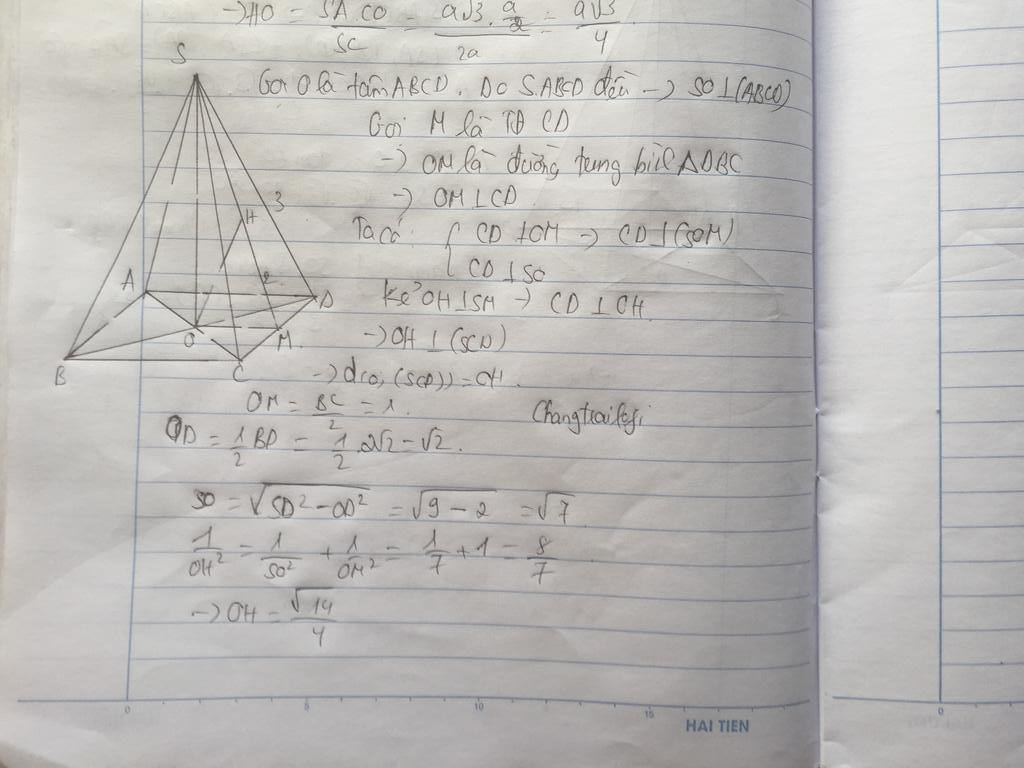 → HO = SA.CO / SC = a√3 . a/2 / 2a = a√3 / 4
S
Gọi O là tâm ABCD. Do S.ABCD đều → SO ⊥ (ABCD)
Gọi M là TĐ CD
→ OM là đường trung bình ΔDBC
→ OM ⊥ CD
3
H
Ta có { CD ⊥ OM → CD ⊥ (SOM)
CD ⊥ SO
2
A
D
Kẻ OH ⊥ SM → CD ⊥ OH
O
M
→ OH ⊥ (SCD)
B
C
→ d(O, (SCD)) = OH.
OM = BC/2 = 1.
Changtraifesi
OD = 1/2 BD = 1/2 . 2√2 = √2.
SO = √(SD² - OD²) = √(9 - 2) = √7
1/OH² = 1/SO² + 1/OM² = 1/7 + 1 = 8/7
→ OH = √14 / 4
0 5 10 15
HAI TIEN
0